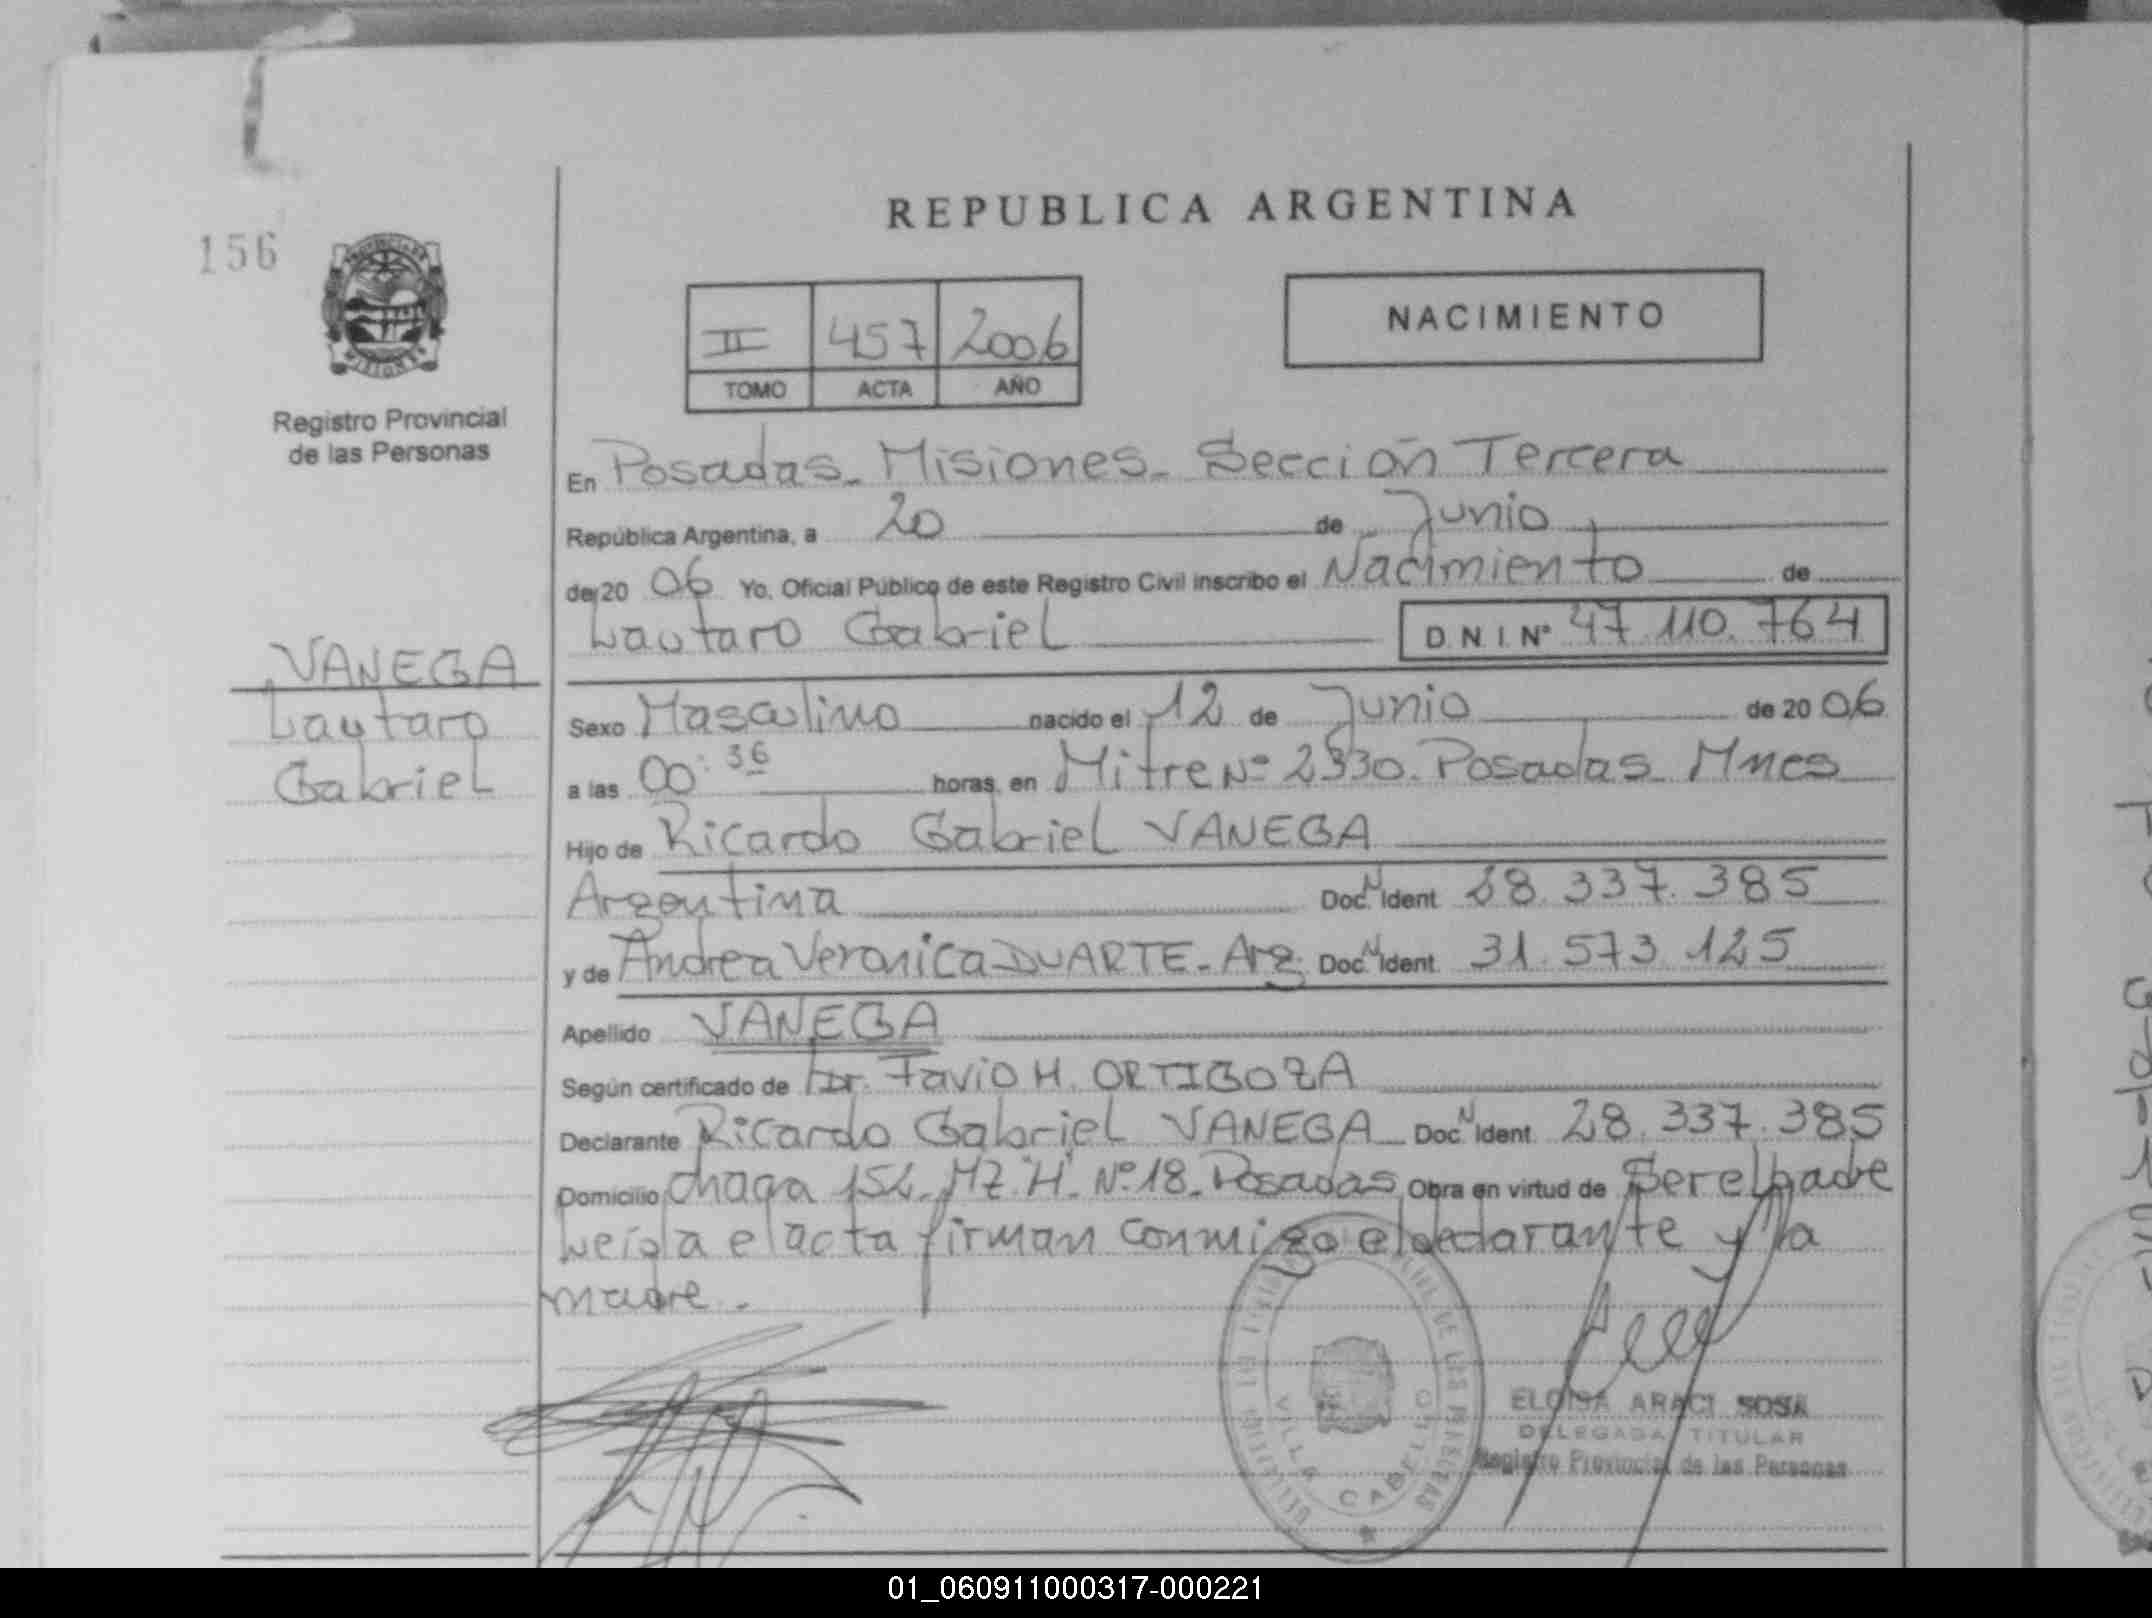 REPUBLICA ARGENTINA
156
PROVINCIA DE
MISIONES
Registro Provincial
de las Personas
II 457 2006
TOMO ACTA AÑO
NACIMIENTO
En Posadas - Misiones - Sección Tercera
República Argentina, a 20 de Junio
de 20 06 Yo, Oficial Público de este Registro Civil inscribo el Nacimiento de
Lautaro Gabriel D.N.I. Nº 47.110.764
VANEGA
Lautaro
Gabriel
Sexo Masculino nacido el 12 de Junio de 20 06
a las 00:36 horas, en Mitre Nº 2330. Posadas Mnes
Hijo de Ricardo Gabriel VANEGA
Argentina Doc. N Ident 28.337.385
y de Andrea Veronica DUARTE - Arg. Doc. N Ident 31.573.125
Apellido VANEGA
Según certificado de Dr. Favio H. ORTIGOZA
Declarante Ricardo Gabriel VANEGA Doc N Ident. 28.337.385
Domicilio Chaca 154 - MZ "H" - Nº 18 - Posadas Obra en virtud de Ser el padre
Leída el acta firman conmigo el declarante y la
madre.
VILLA CABELLO
ELOISA ARACI SOSA
DELEGADA TITULAR
Registro Provincial de las Personas
01_060911000317-000221